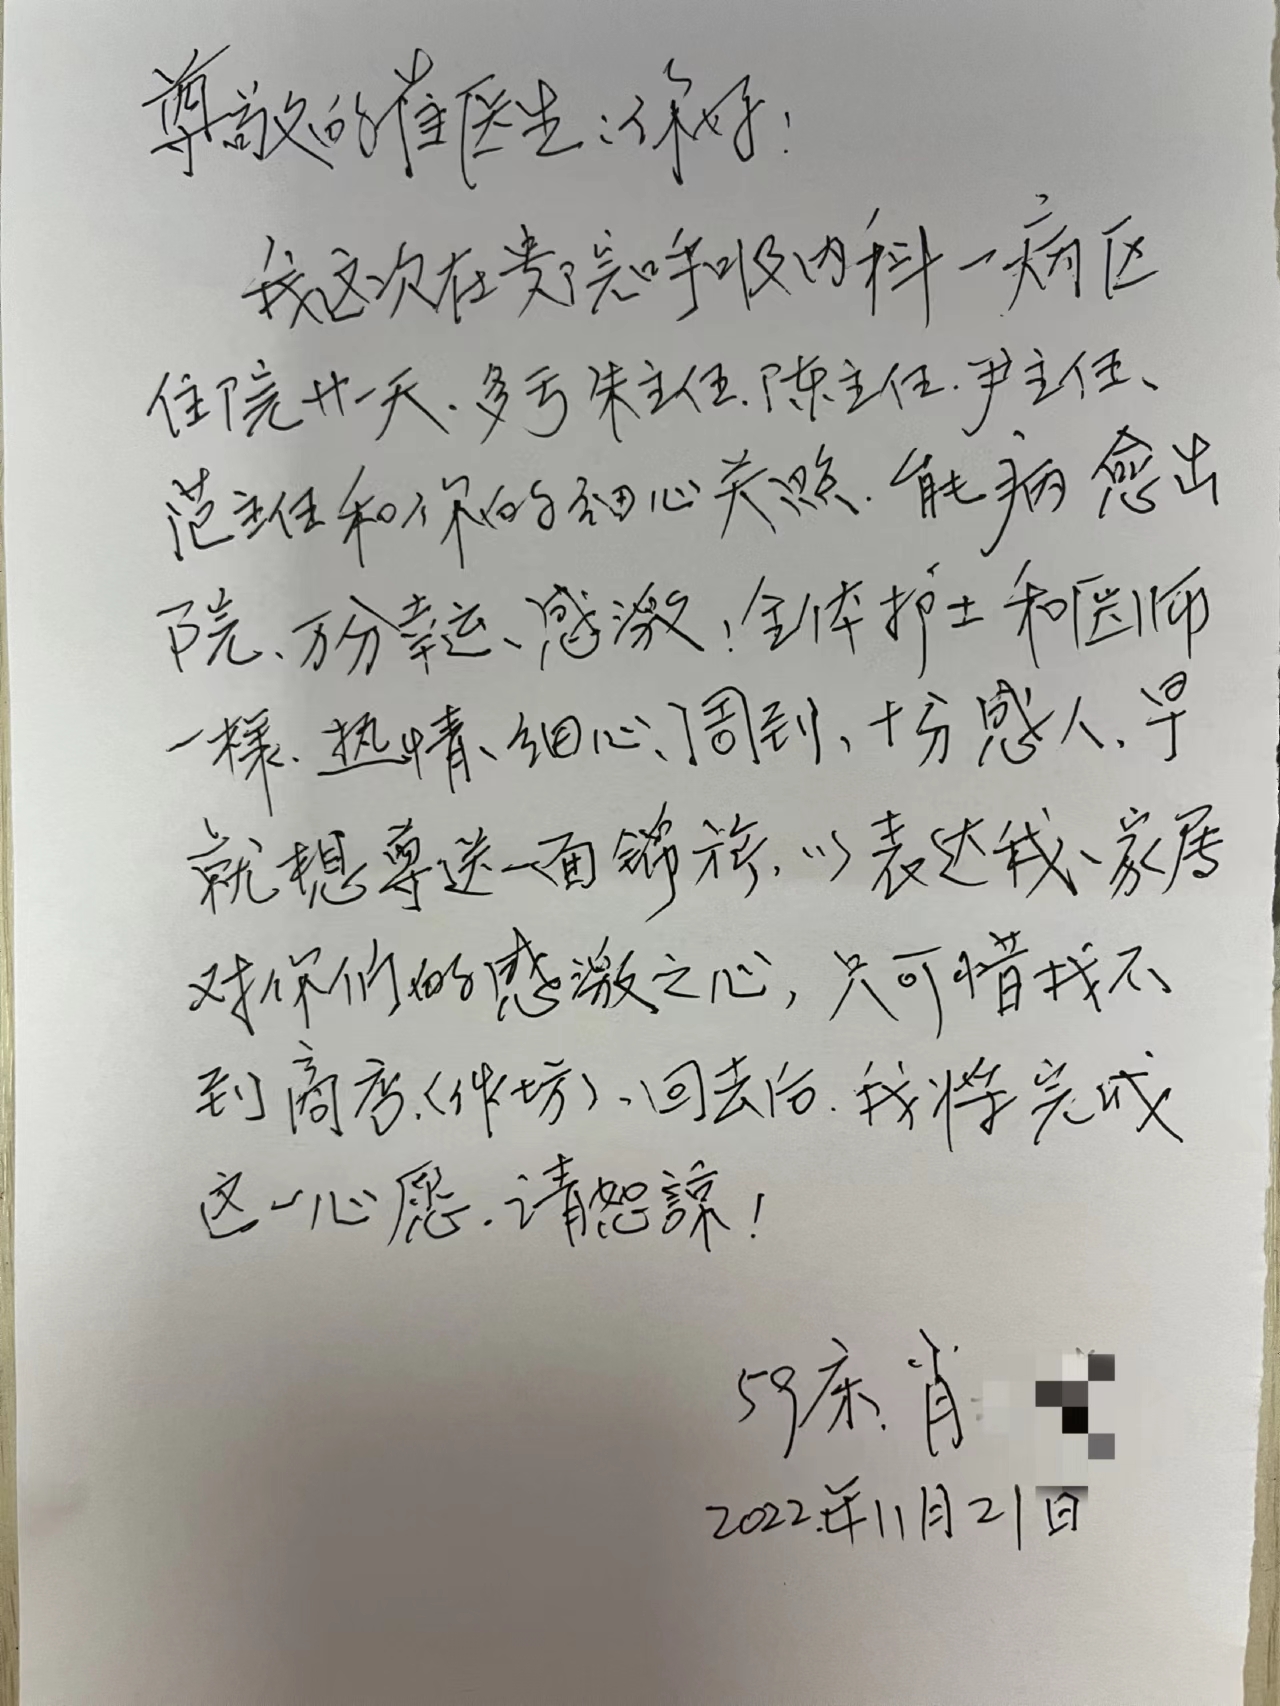 尊敬的崔医生:你好!
我这次在贵院呼吸内科一病区
住院廿一天、多亏朱主任、陈主任、尹主任、
范主任和你的细心关照、能病愈出
院、万分幸运、感激!全体护士和医师
一樣、热情、细心、周到、十分感人、早
就想尊送一面锦旗、以表达我、家属
对你们的感激之心,只可惜找不
到商店(作坊)、回去后、我将完成
这一心愿、请恕諒!
59床、肖
2022年11月21日